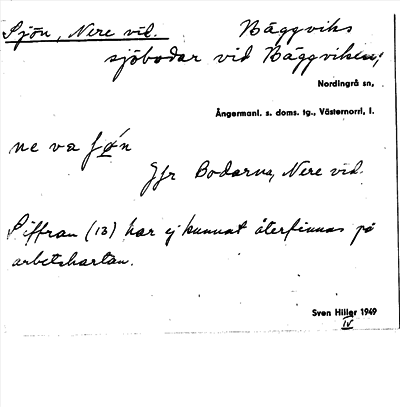 Sjön, Nere vid. Bäggviks
sjöbodar vid Bäggviken;
Nordingrå sn,
Ångermanl. s. doms. tg., Västernorrl. l.
ne va ʃǿn
Jfr Bodarna, Nere vid.
Siffran (13) har ej kunnat återfinnas på
arbetskartan.
Sven Hiller 1949
IV